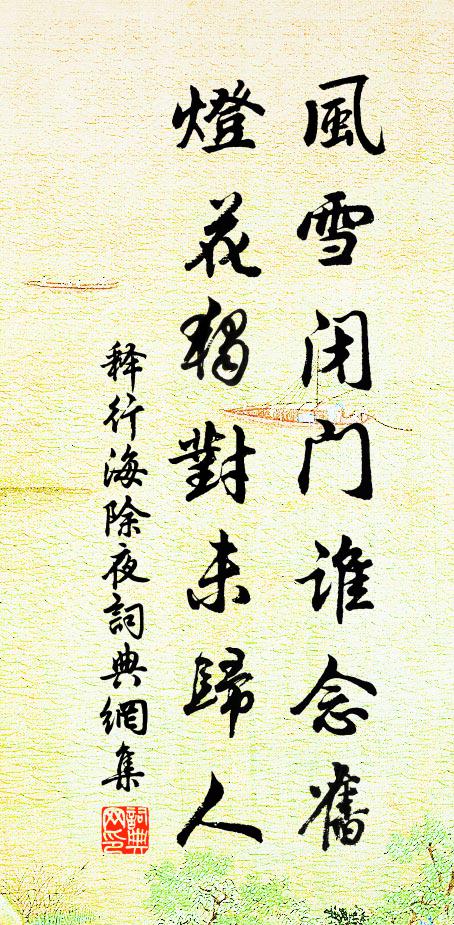 風雪闭门谁念舊
燈花獨對未歸人
释行海除夜詞典網集
詞典網印